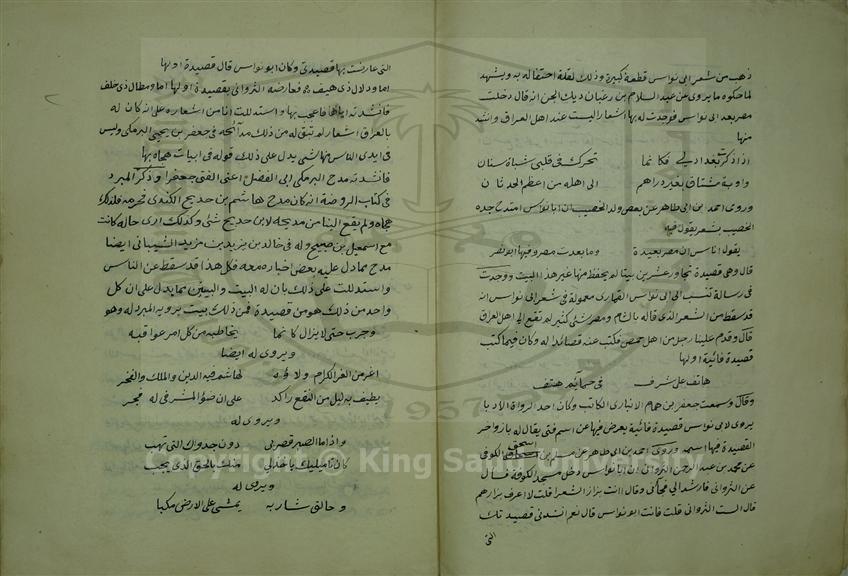 ذهب من شعر ابى نواس قطعة كبيرة وذلك لقلة احتفاله به ويشهد
لما حكوه ما يروى عن عبد السلام بن رغبان ديك الجن انه قال دخلت
مصر بعد ابى نواس فوجدت له بها اشعارا ليست عند اهل العراق وانشد
منها
اذا ذكرت بغداد لى فكانما تحرك فى قلبى شباة سنان
واوبة مشتاق بغير دراهم الى اهله من اعظم الحدثان
وروى احمد بن ابى طاهر عن بعض ولد الخصيب ان ابا نواس امتدح جده
الخصيب بشعر يقول فيه
يقول اناس ان مصر بعيدة وما بعدت مصر وفيها ابو نصر
قال وهى قصيدة تجاوز عشرين بيتا لم يحفظ منها غير هذا البيت ووجدت
فى رسالة تنسب الى ابى نواس القيارى معمولة فى شعر ابى نواس انه
قد سقط من الشعر الذى قاله بالشام ومصر شئ كثير لم تقع الى اهل العراق
قال وقدم علينا رجل من اهل حمص فكتب عنه قصائد له وكان فيما كتب
قصيدة فائية اولها
هاتف على شرف فى حمايم هتف
وقال وسمعت جعفر بن همام الانبارى الكاتب وكان احد الرواة الادبا
يروى لابى نواس قصيدة فائية يعرض فيها عن اسم فتى يقال له باز واخر
القصيدة فيها اسمه وروى احمد بن ابى طاهر عن اسحق الكوفى
عن محمد بن عبد الرحمن الثروانى ان ابا نواس دخل مسجد الكوفة فسال
عن الثروانى فارشد الى فجائنى وقال انت بزاز الشعرا قلت لا اعرف بزازهم
قال الست الثروانى قلت فانت ابو نواس قال نعم انشدنى قصيدتك
التى
التى عارضت بها قصيدتى وكان ابو نواس قال قصيدة اولها
اما ودلال ذى هيف فعارضه الثروانى بقصيدة اولها اما ومطال ذى خلف
فانشدته اياها فاعجب بها واستدللت انا من اشعاره على انه كان له
بالعراق اشعار لم تبق له من ذلك مدائحه فى جعفر بن يحيى البرمكى وليس
فى ايدى الناس منها شئ يدل على ذلك قوله فى ابيات هجاه بها
فانشدته مدح البرمكى ابى الفضل اعنى الفتى جعفرا وذكر المبرد
فى كتاب الروضة انه كان مدح هاشم بن حديج الكندى فحرمه فلذلك
هجاه ولم يقع الينا من مديحه لابن حديج شئ وكذلك ارى حاله كانت
مع اسمعيل بن صبيح وله فى خالد بن يزيد بن مزيد الشيبانى ايضا
مدح مما دل عليه بعض اخباره معه فكل هذا قد سقط عن الناس
واستدللت على ذلك بان له البيت والبيتين مما يدل على ان كل
واحد من ذلك هو من قصيدة فمن ذلك بيت يرويه المبرد له وهو
وجرب حتى لا يزال كانما يخاطبه من كل امر عواقبه
ويروى له ايضا
اغر من الغر الكرام لهاشم فيه الدين والملك والفخر
يطيف به ليل من النقع راكد على ان ضوء المشرفى له فجر
ويروى له
واذا ما الصبر قصر بى دون جدواك التى تهب
كان تاميليك ياخذ لى منك بالحق الذى يجب
ويروى له
وحالق شاربه يمشى على الارض مكبا
Copyright © King Saud University
1957